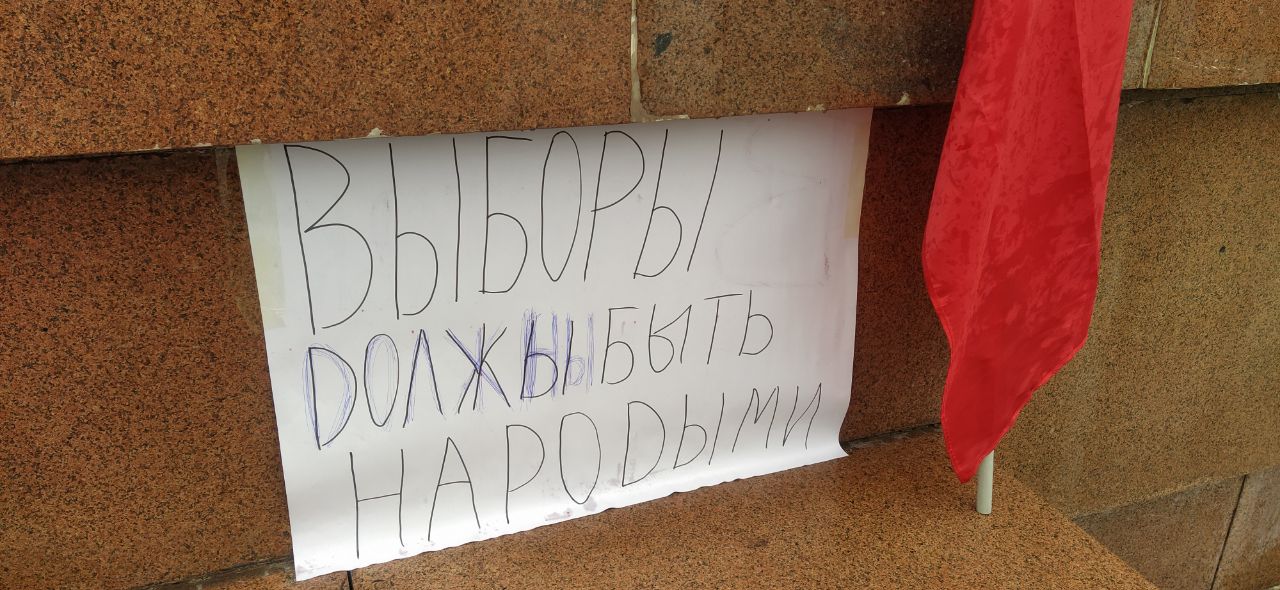 ВЫБОРЫ
DОЛЖЫ БЫТЬ
НАРОDЫМИ